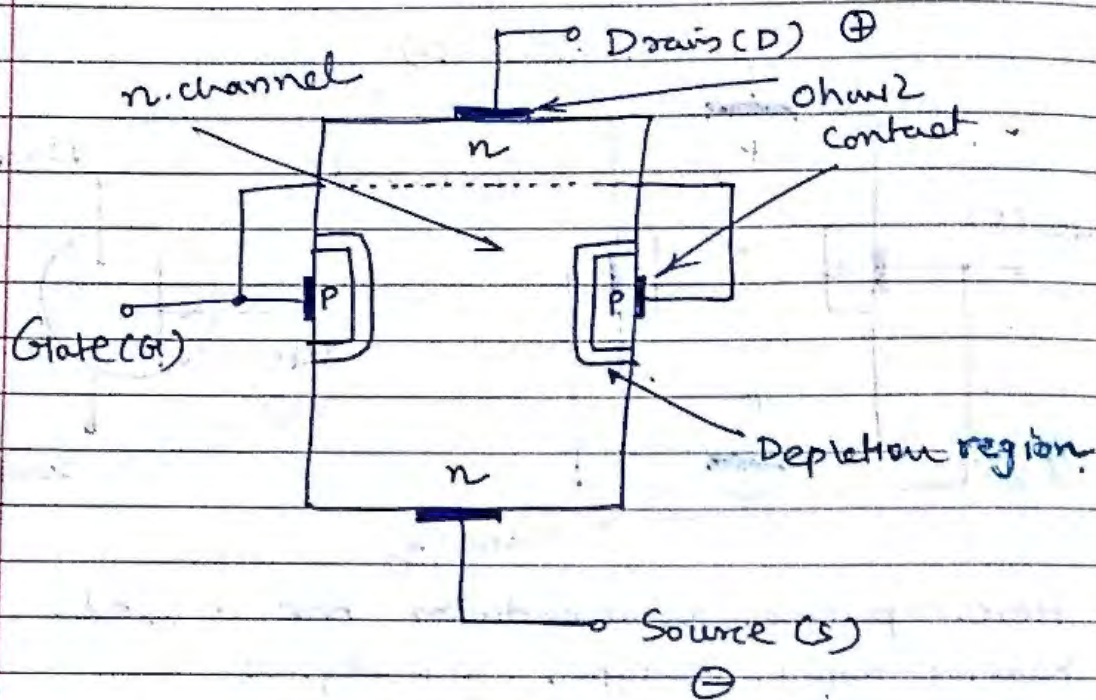 Drain(D) ⊕
n. channel
Ohmic
contact
n
P
P
Gate(G)
Depletion region.
n
Source (S)
⊖